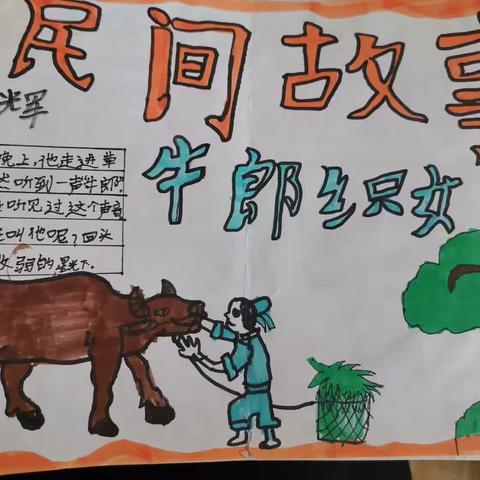 民间故事
牛郎织女
晚上,他走进草
听到一声牛郎,
听见过这个声音
叫他呢?回头
弱的星光下.